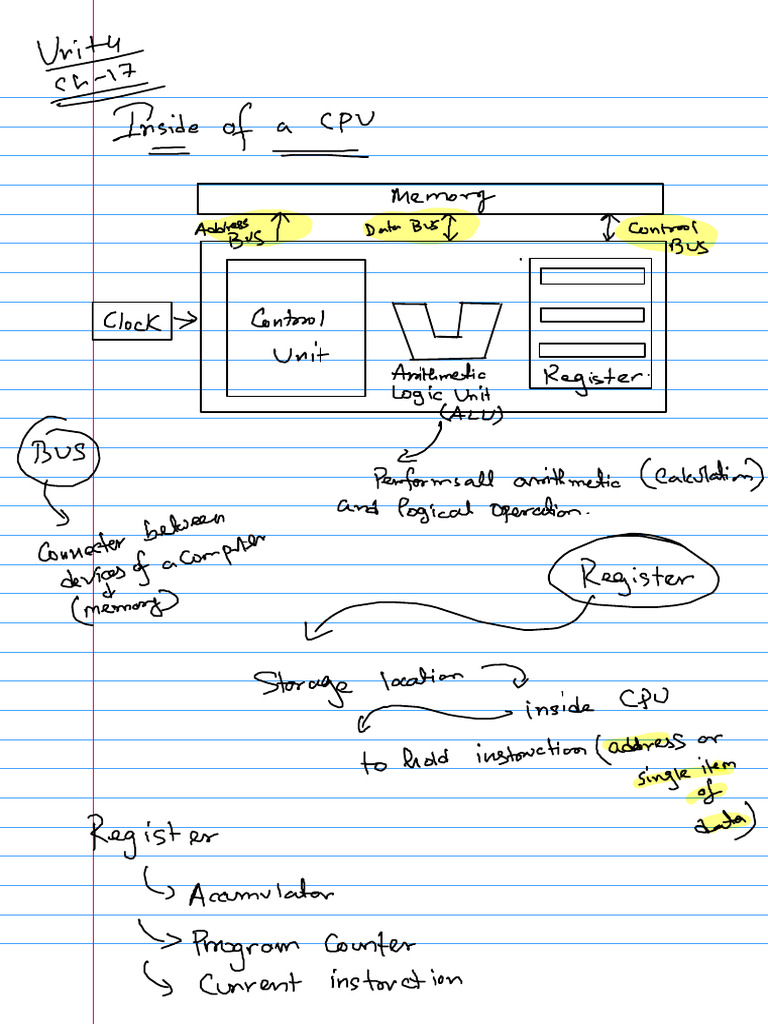 Unit 4
Ch-17
Inside of a CPU
Memory
Address
BUS
Data BUS
Control
BUS
Clock
Control
Unit
Arithmetic
Logic Unit
(ALU)
Register
BUS
Performs all arithmetic (Calculation)
and logical operation.
Connecter between
devices of a computer
(memory)
Register
Storage location
inside CPU
to hold instruction (address or
single item
of
data)
Register
Acumulator
Program Counter
Current instruction